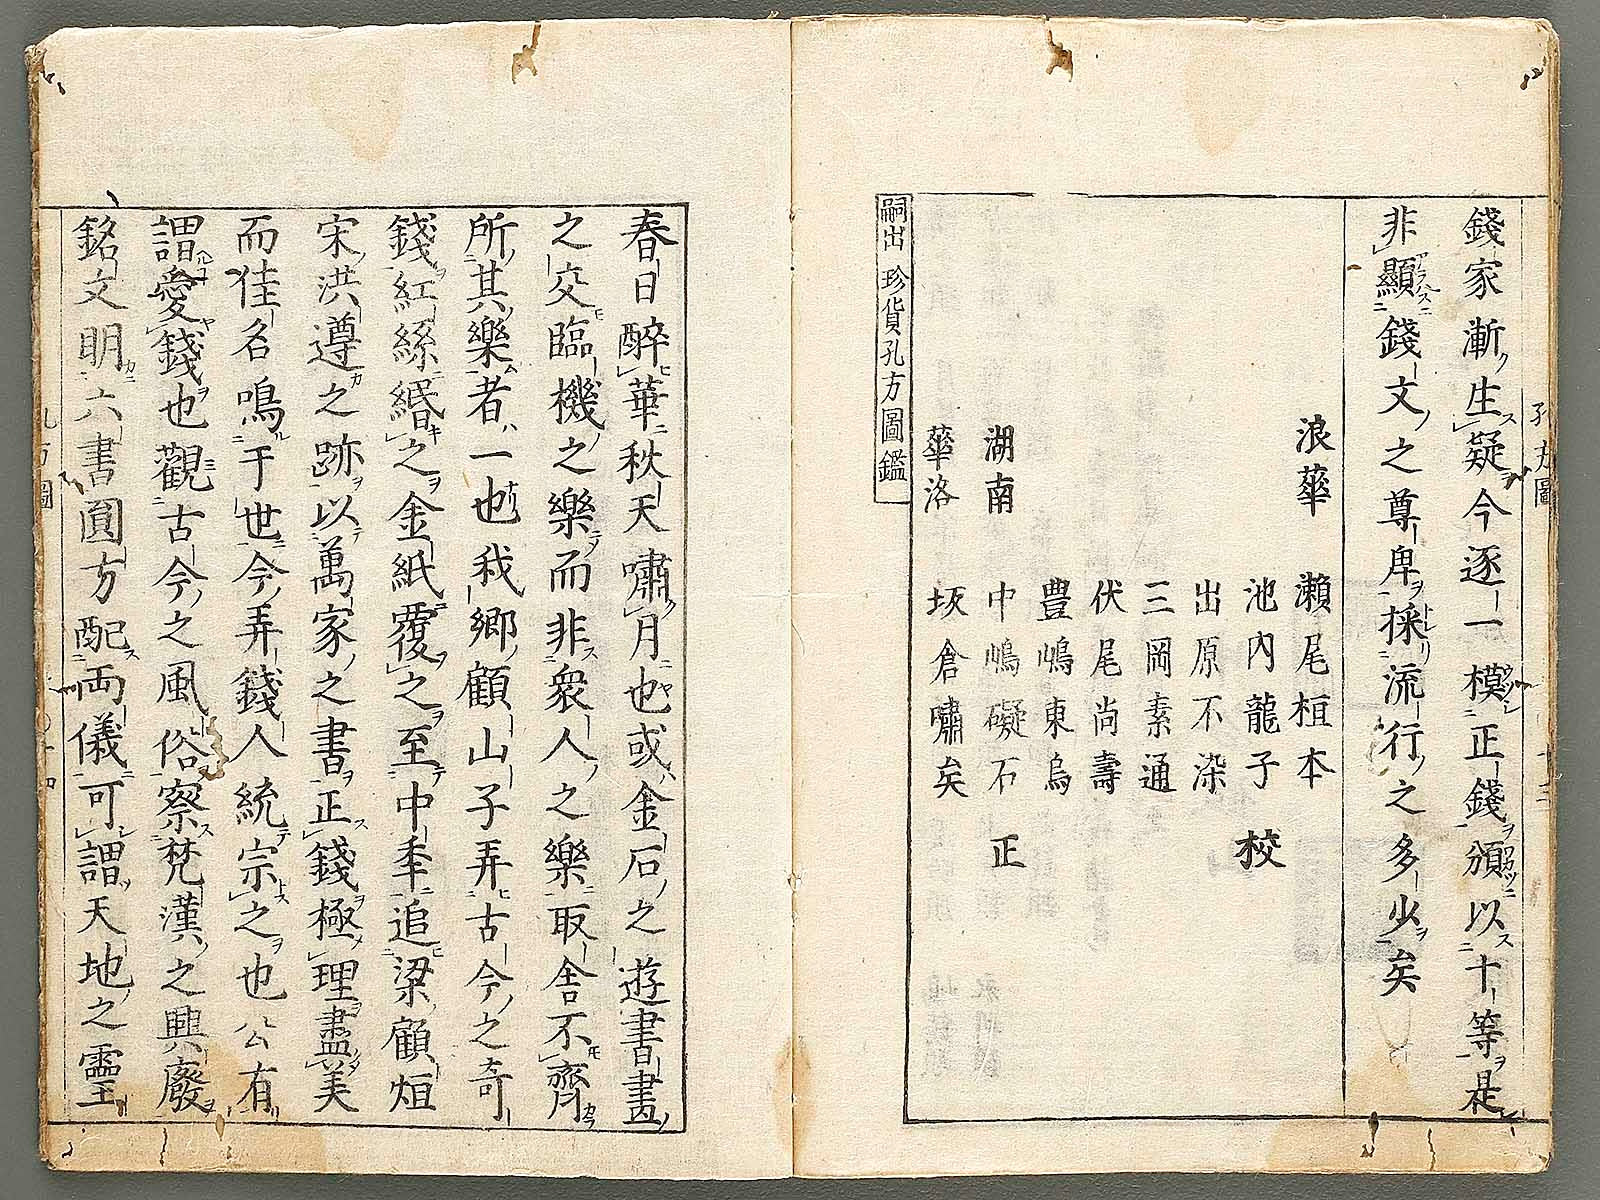 錢家漸生疑今逐一模正錢頒以十等是
非顯錢文之尊卑採流行之多少矣
浪華 瀨尾桓本
池內龍子 校
出原不染
三岡素通
伏尾尚壽
豊嶋東烏
湖南 中嶋礙石 正
華洛 坂倉嘯矣
嗣出 珍貨孔方圖鑑
春日醉華秋天嘯月也或金石之遊書畫
之交臨機之樂而非衆人之樂取舍不齊
所其樂者一也我鄉顧山子弄古今之奇
錢紅絲緡之金紙覆之至中秊追梁顧烜
宋洪遵之跡以萬家之書正錢極理盡美
而佳名鳴于世今弄錢人統宗之也公有
謂愛錢也觀古今之風俗察梵漢之興廢
銘文明六書圓方配両儀可謂天地之靈